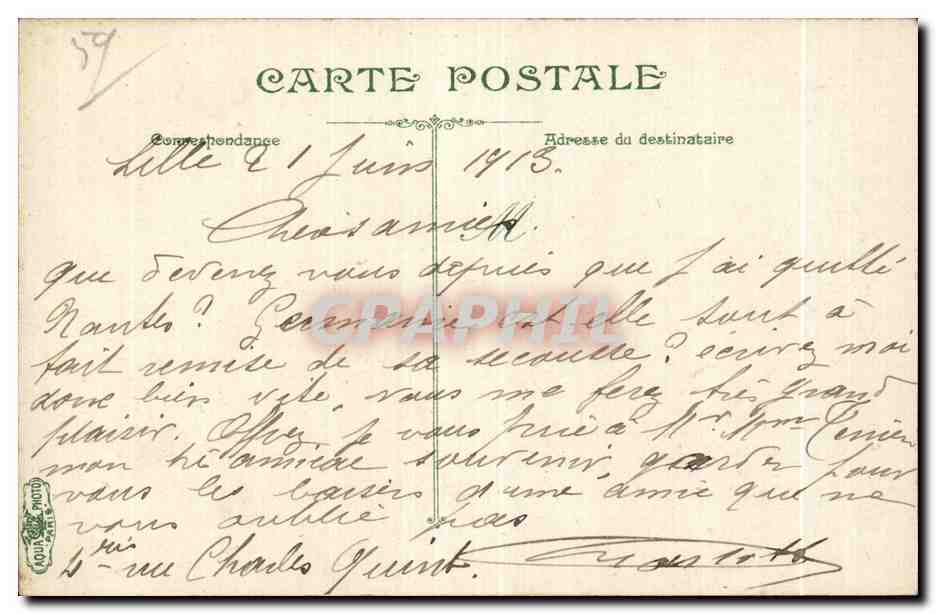 59
CARTE POSTALE
Correspondance
Adresse du destinataire
Lille 21 Juin 1913.
Que devenez vous depuis que j'ai quitté
Nantes? Germaine est elle tout à
fait remise de sa secousse? écrivez moi
donc bien vite, vous me ferez très grand
plaisir. Offrez je vous prie à Mr Mme
mon amical souvenir, gardez pour
vous les baisers d'une amie que ne
vous oublie pas
rue Charles Quint.
CPAPHIL
AQUA PHOTO
PARIS